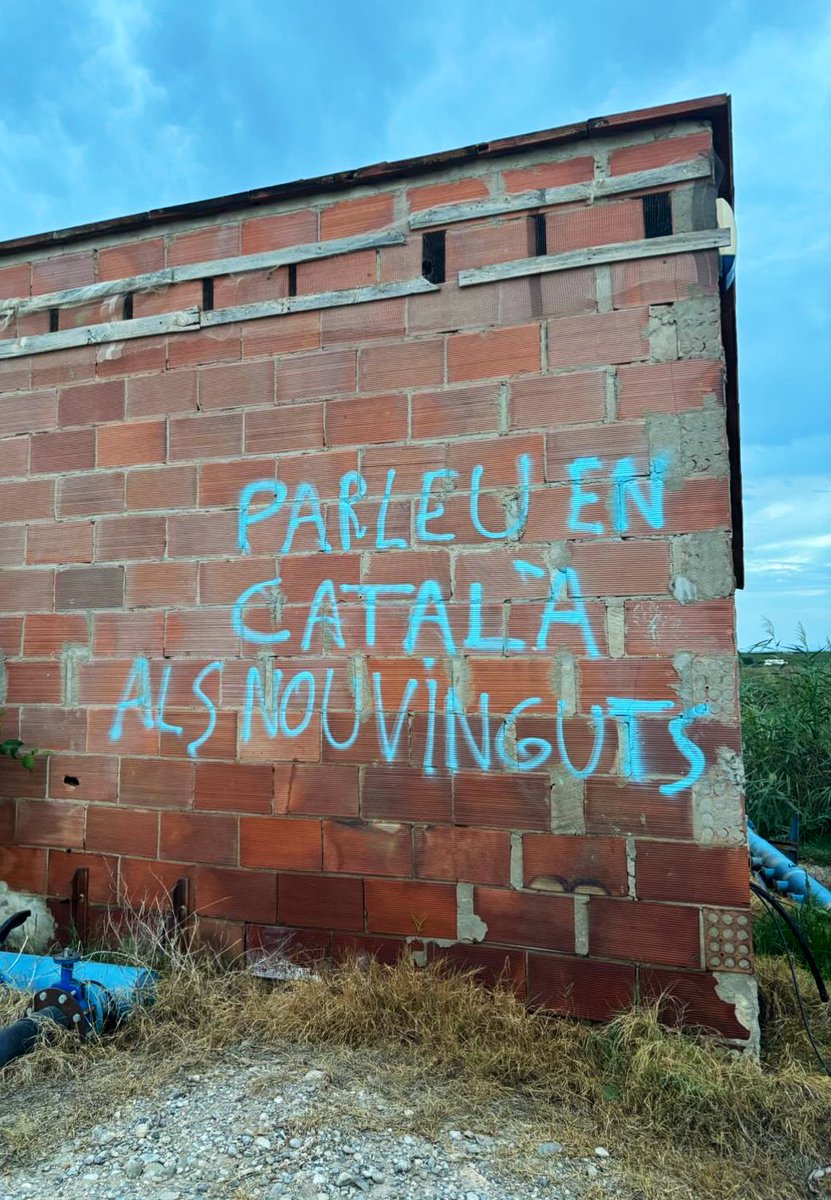 PARLEU EN
CATALÀ
ALS NOUVINGUTS